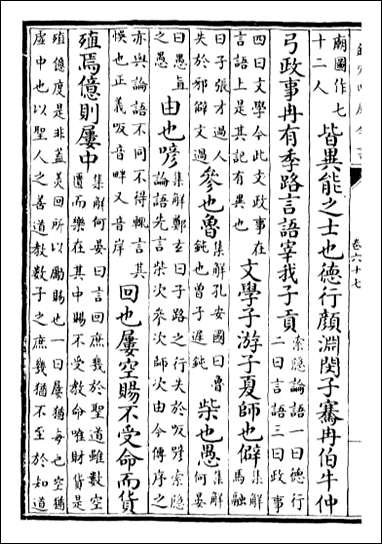 卷六十七
廟國作七
十二人
皆異能之士也德行顔淵閔子騫冉伯牛仲
弓政事冉有季路言語宰我子貢
索隱論語一曰德行
二曰言語三曰政事
四曰文學今此文政事在
言語上是其記有異也
文學子游子夏師也僻
集解
馬融
曰子張才過人
失於邪僻文過
參也魯
集解孔安國曰魯
鈍也曾子遲鈍
柴也愚
集解
何晏
曰愚直
之愚
由也喭
集解鄭玄曰子路之行失於畈喭索隱
論語先言柴次參次師次由今傳序之
亦與論語不同不得輒言其
悞也正義畈音畔又音岸
回也屢空賜不受命而貨
殖焉億則屢中
集解何晏曰言回庶幾於聖道雖數空
匱而樂在其中賜不受教命唯財貨是
殖億度是非蓋美回所以勵賜也一曰屢猶每也空猶
虛中也以聖人之善道教數子之庶幾猶不至於知道